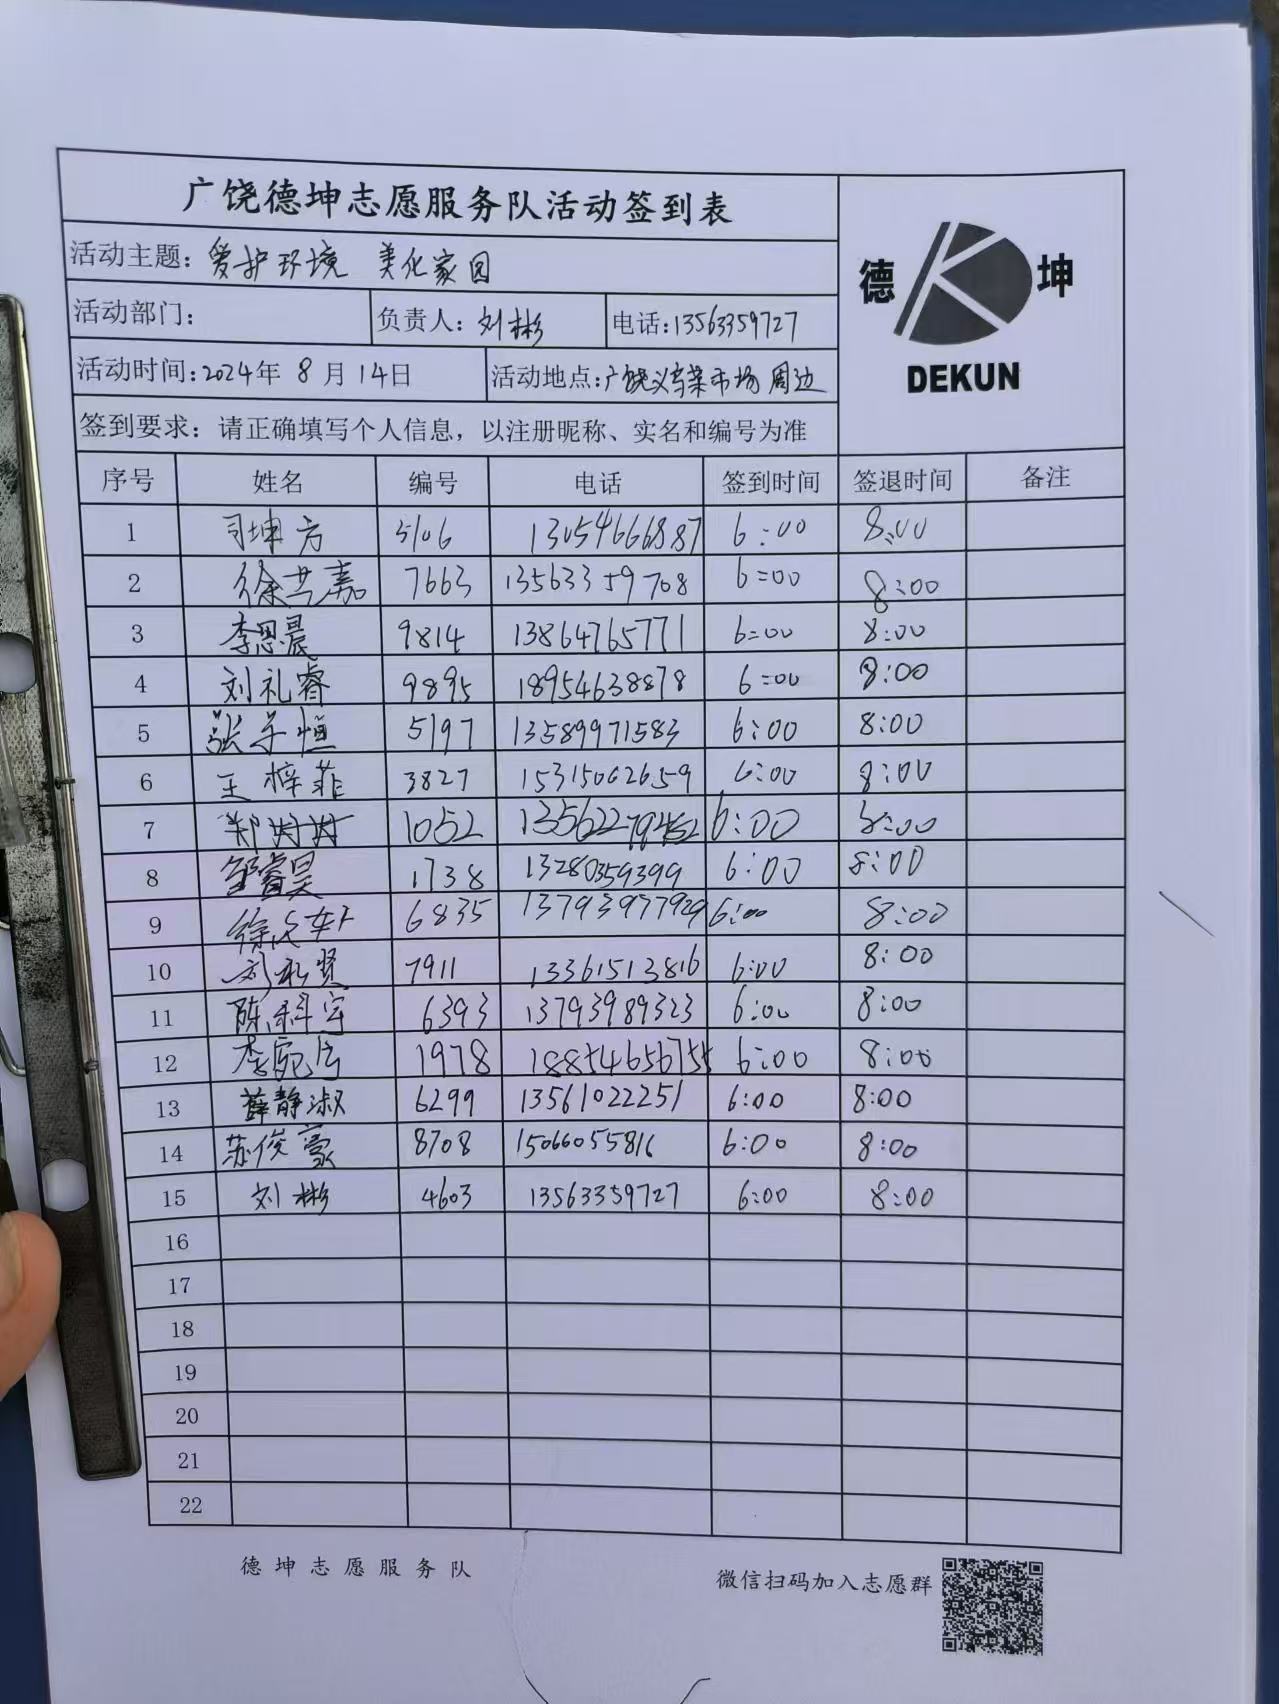 广饶德坤志愿服务队活动签到表
德 坤
DEKUN
活动主题：爱护环境 美化家园
活动部门： 负责人：刘彬 电话：13563359727
活动时间：2024年 8 月 14日 活动地点：广饶义乌菜市场周边
签到要求：请正确填写个人信息，以注册昵称、实名和编号为准
序号 姓名 编号 电话 签到时间 签退时间 备注
1 司坤方 5106 13054666887 6:00 8:00
2 徐艺嘉 7663 13563359708 6=00 8:00
3 李思晨 9814 13864765771 6=00 8:00
4 刘礼睿 9895 18954638878 6=00 8:00
5 张子恒 5197 13589971583 6:00 8:00
6 王梓菲 3827 15315062659 6:00 8:00
7 1052 6:00 8:00
8 邹睿昊 1738 13280359399 6:00 8:00
9 6835 13793977929 6:00 8:00
10 刘礼贤 7911 13361513816 6:00 8:00
11 陈科宇 6393 13793989323 6:00 8:00
12 1978 18854656755 6:00 8:00
13 薛静淑 6299 13561022251 6:00 8:00
14 苏俊豪 8708 15066055816 6:00 8:00
15 刘彬 4603 13563359727 6:00 8:00
16
17
18
19
20
21
22
德坤志愿服务队 微信扫码加入志愿群